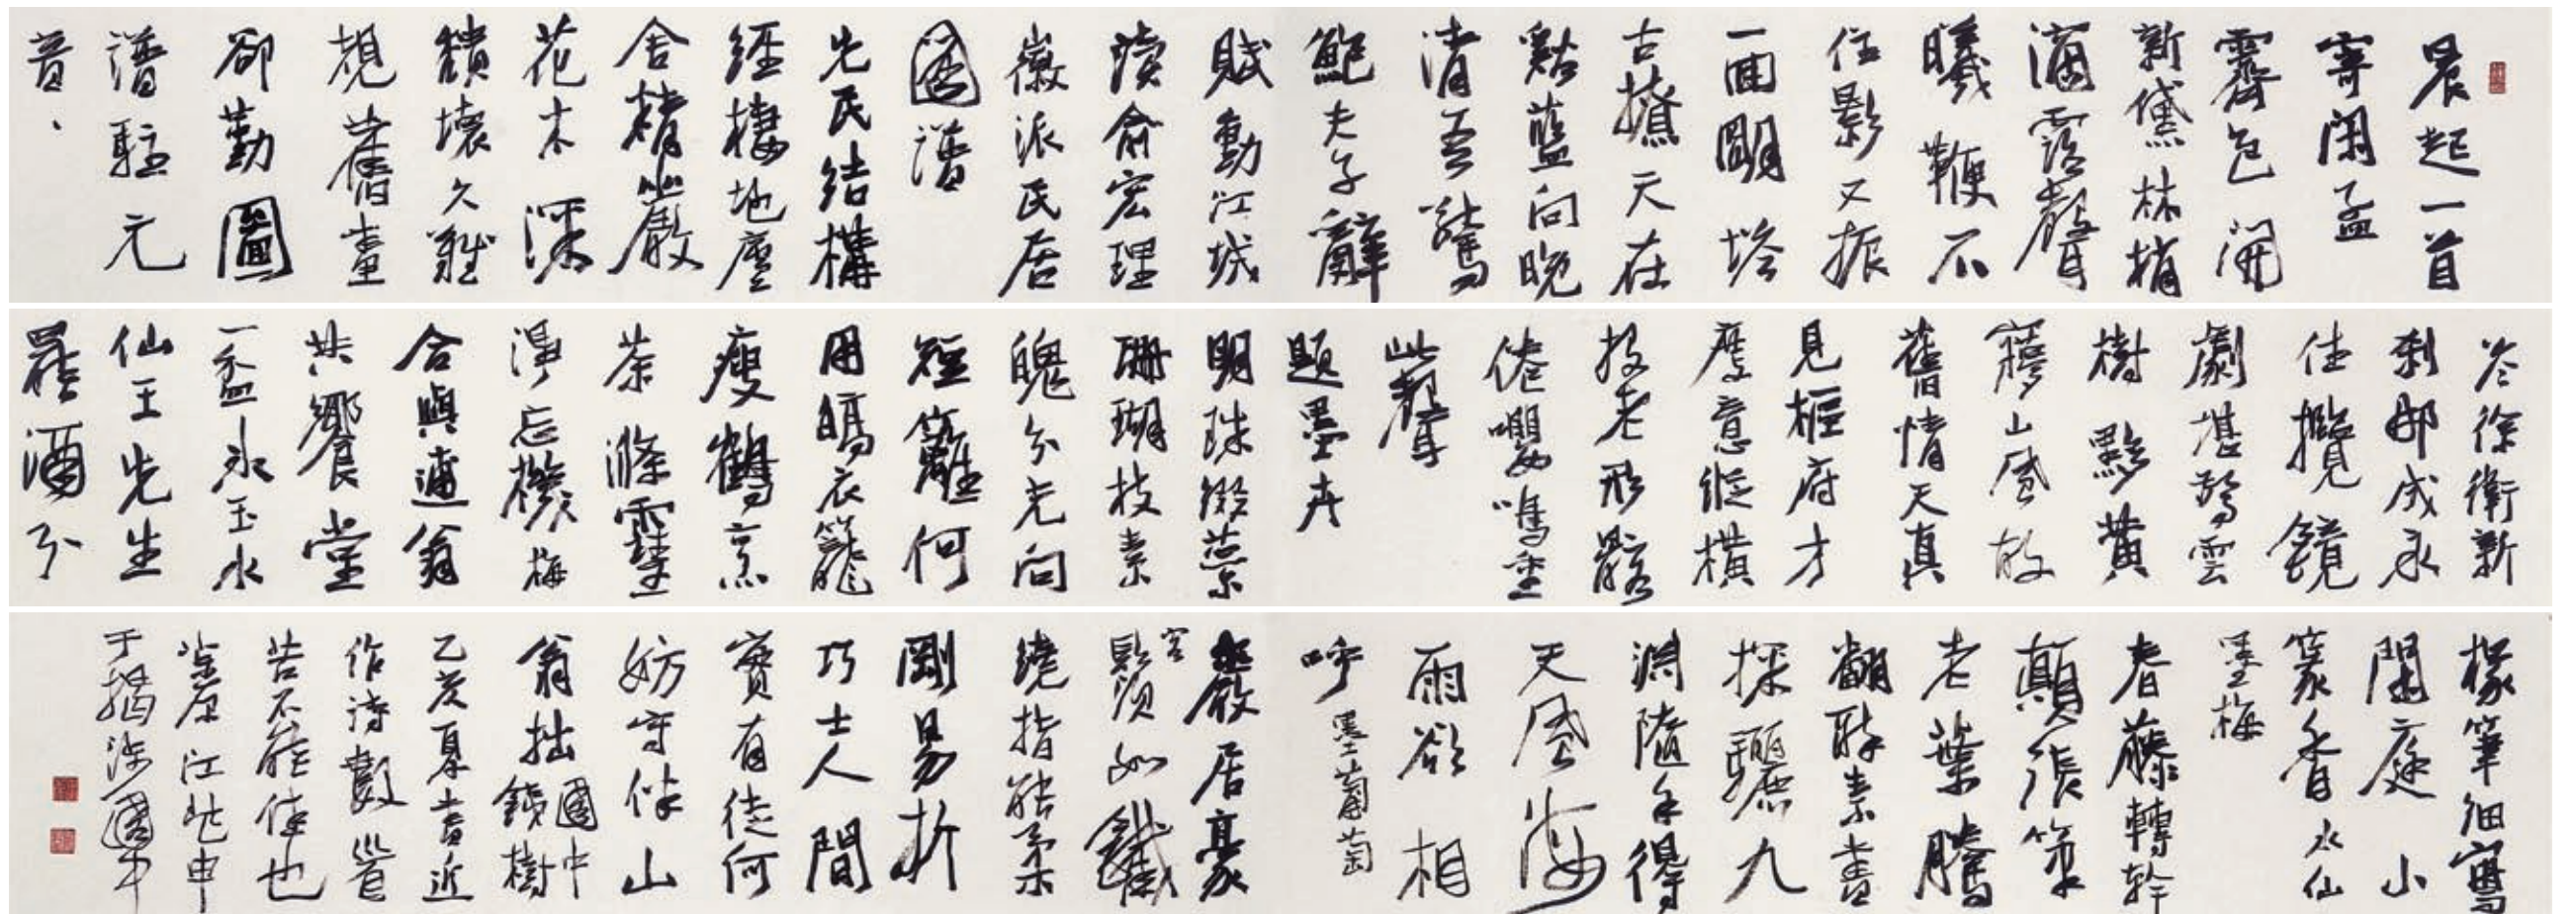 晨起一首
寄闲孟
霽色開
新黛林梢
滴露聲
曦鞭不
住影又振
一圃圃塔
古撫天在
谿藍向晚
清吾驚
鮑夫子辭
賦動江城
讀俞宏理
徽派民居
圖譜
先民結構
經樓地廬
舍精嚴
花木深
積壞久難
規舊畫
卻勤圖
譜駐元
音、
冷徐衛新
刹那成永
住攬鏡
劇堪驚雲
樹黟黄
山風故
舊情天真
見樞府才
應意縱橫
投老形骸
倦嚶鳴重
此聲
題墨卉
明珠綴蕊
珊瑚枝素
魄分光向
短籬何
用縞衣籠
瘦鶴烹
茶滌靈
渾忘機梅
合與逋翁
共饗堂
一盃冰玉水
仙王先生
罷酒分
椽筆細寫
閑庭小
篆香水仙
墨梅
春藤轉幹
顛張筆
老葉騰
翻醉素書
探驪九
淵隨手得
天風海
雨欲相
呼墨葡萄
嚴居豪
客鬚須如鐵
繞指能柔
剛易折
巧士人間
寶有徒何
妨守伴山
翁拙鐵樹國中
乙亥夏書近
作詩數首
苦不能佳也
黄原江駝申
于揭涉國中